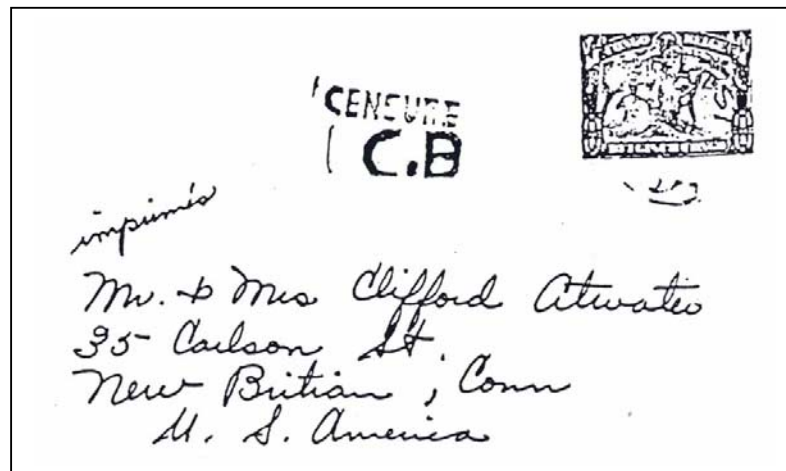 CENSURE
C.B
imprimés
Mr. & Mrs Clifford Atwater
35 Carlson St.
New Britian, Conn
U. S. America